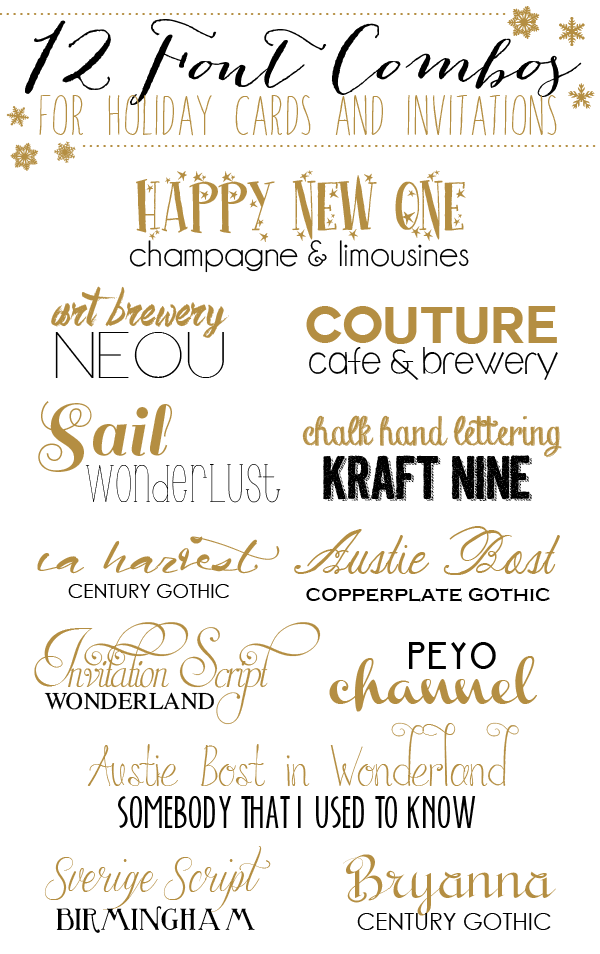 12 Font Combos
FOR HOLIDAY CARDS AND INVITATIONS
HAPPY NEW ONE
champagne & limousines
art brewery
NEOU
COUTURE
cafe & brewery
Sail
wonderlust
chalk hand lettering
KRAFT NINE
ca harvest
CENTURY GOTHIC
Austie Bost
COPPERPLATE GOTHIC
Invitation Script
WONDERLAND
PEYO
channel
Austie Bost in Wonderland
SOMEBODY THAT I USED TO KNOW
Sverige Script
BIRMINGHAM
Bryanna
CENTURY GOTHIC